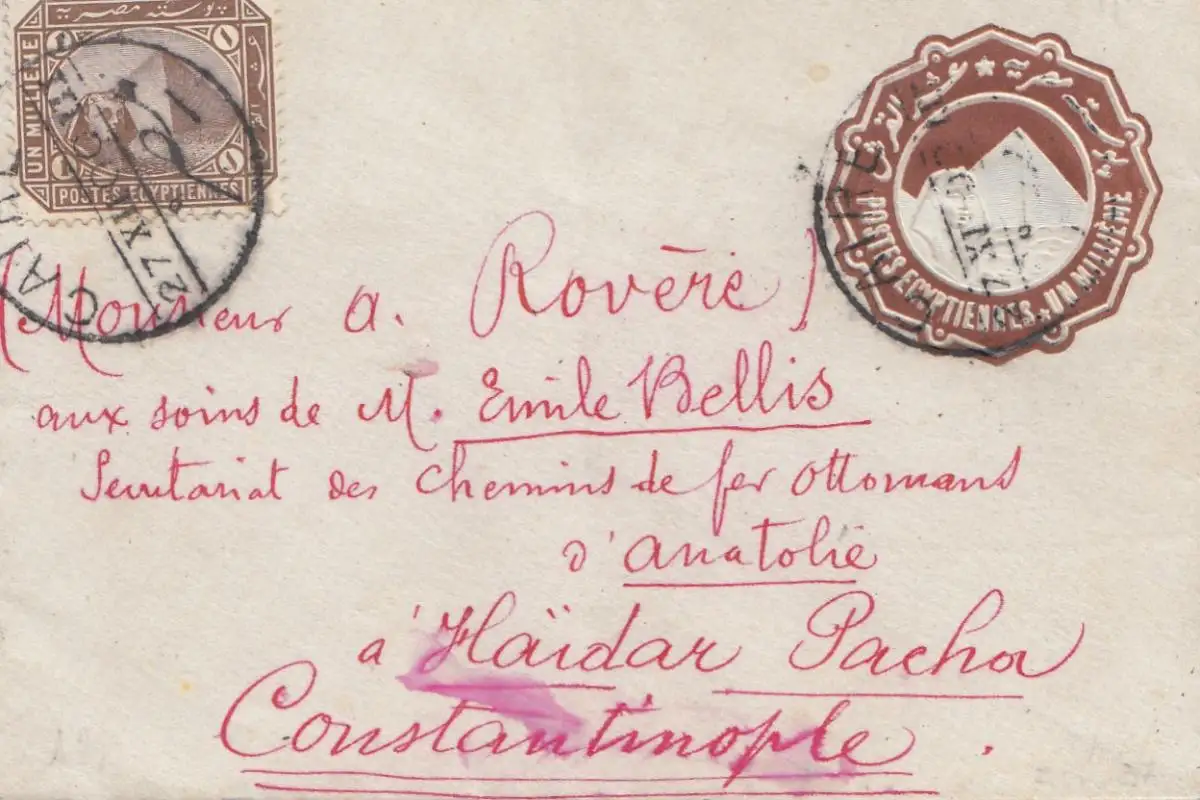 پوسته مصريه
UN MILLIÈME
POSTES EGYPTIENNES
1
1
1
1
CAIRE
27 XI
بوسته مصرية
POSTES EGYPTIENNES ★ UN MILLIÈME
CAIRE
XI
(Monsieur A. Rovère)
aux soins de M. Emile Bellis
Secretariat des Chemins de fer Ottomans
d'Anatolie
à Haïdar Pacha
Constantinople.